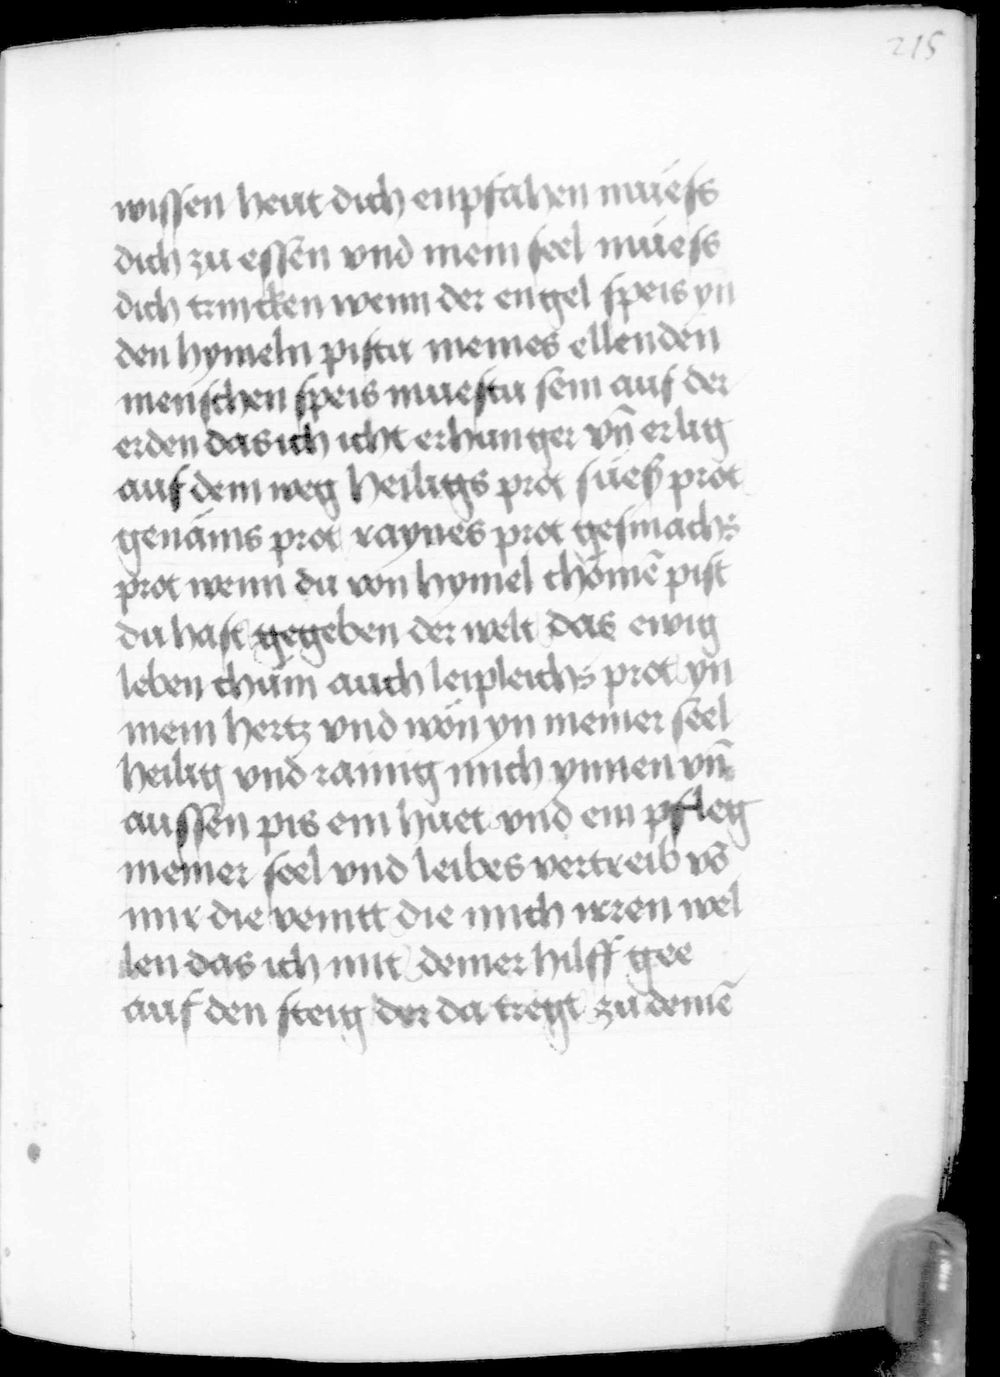 215
wissen heut dich enpfahen mueß
dich zu essen vnd mein seel mueß
dich trincken wenn der engel speis yn
den hymeln pistu meines ellenden
menschen speis muestu sein auf der
erden das ich icht erhunger vn̄ erlig
auf dem weg heiligs prot süeß prot
genäms prot raynes prot gesmachs
prot wenn du von hymel chömē pist
du hast gegeben der welt das ewig
leben chum auch leipleichs prot yn
mein hertz vnd wön yn meiner seel
heilig vnd rainig mich ynnen vn̄
aussen pis ein huet vnd ein pfleg
meiner seel vnd leibes vertreib vō
mir die veintt die mich irren wel
len das ich mit deiner hilff gee
auf den steig der da tregt zu deinē